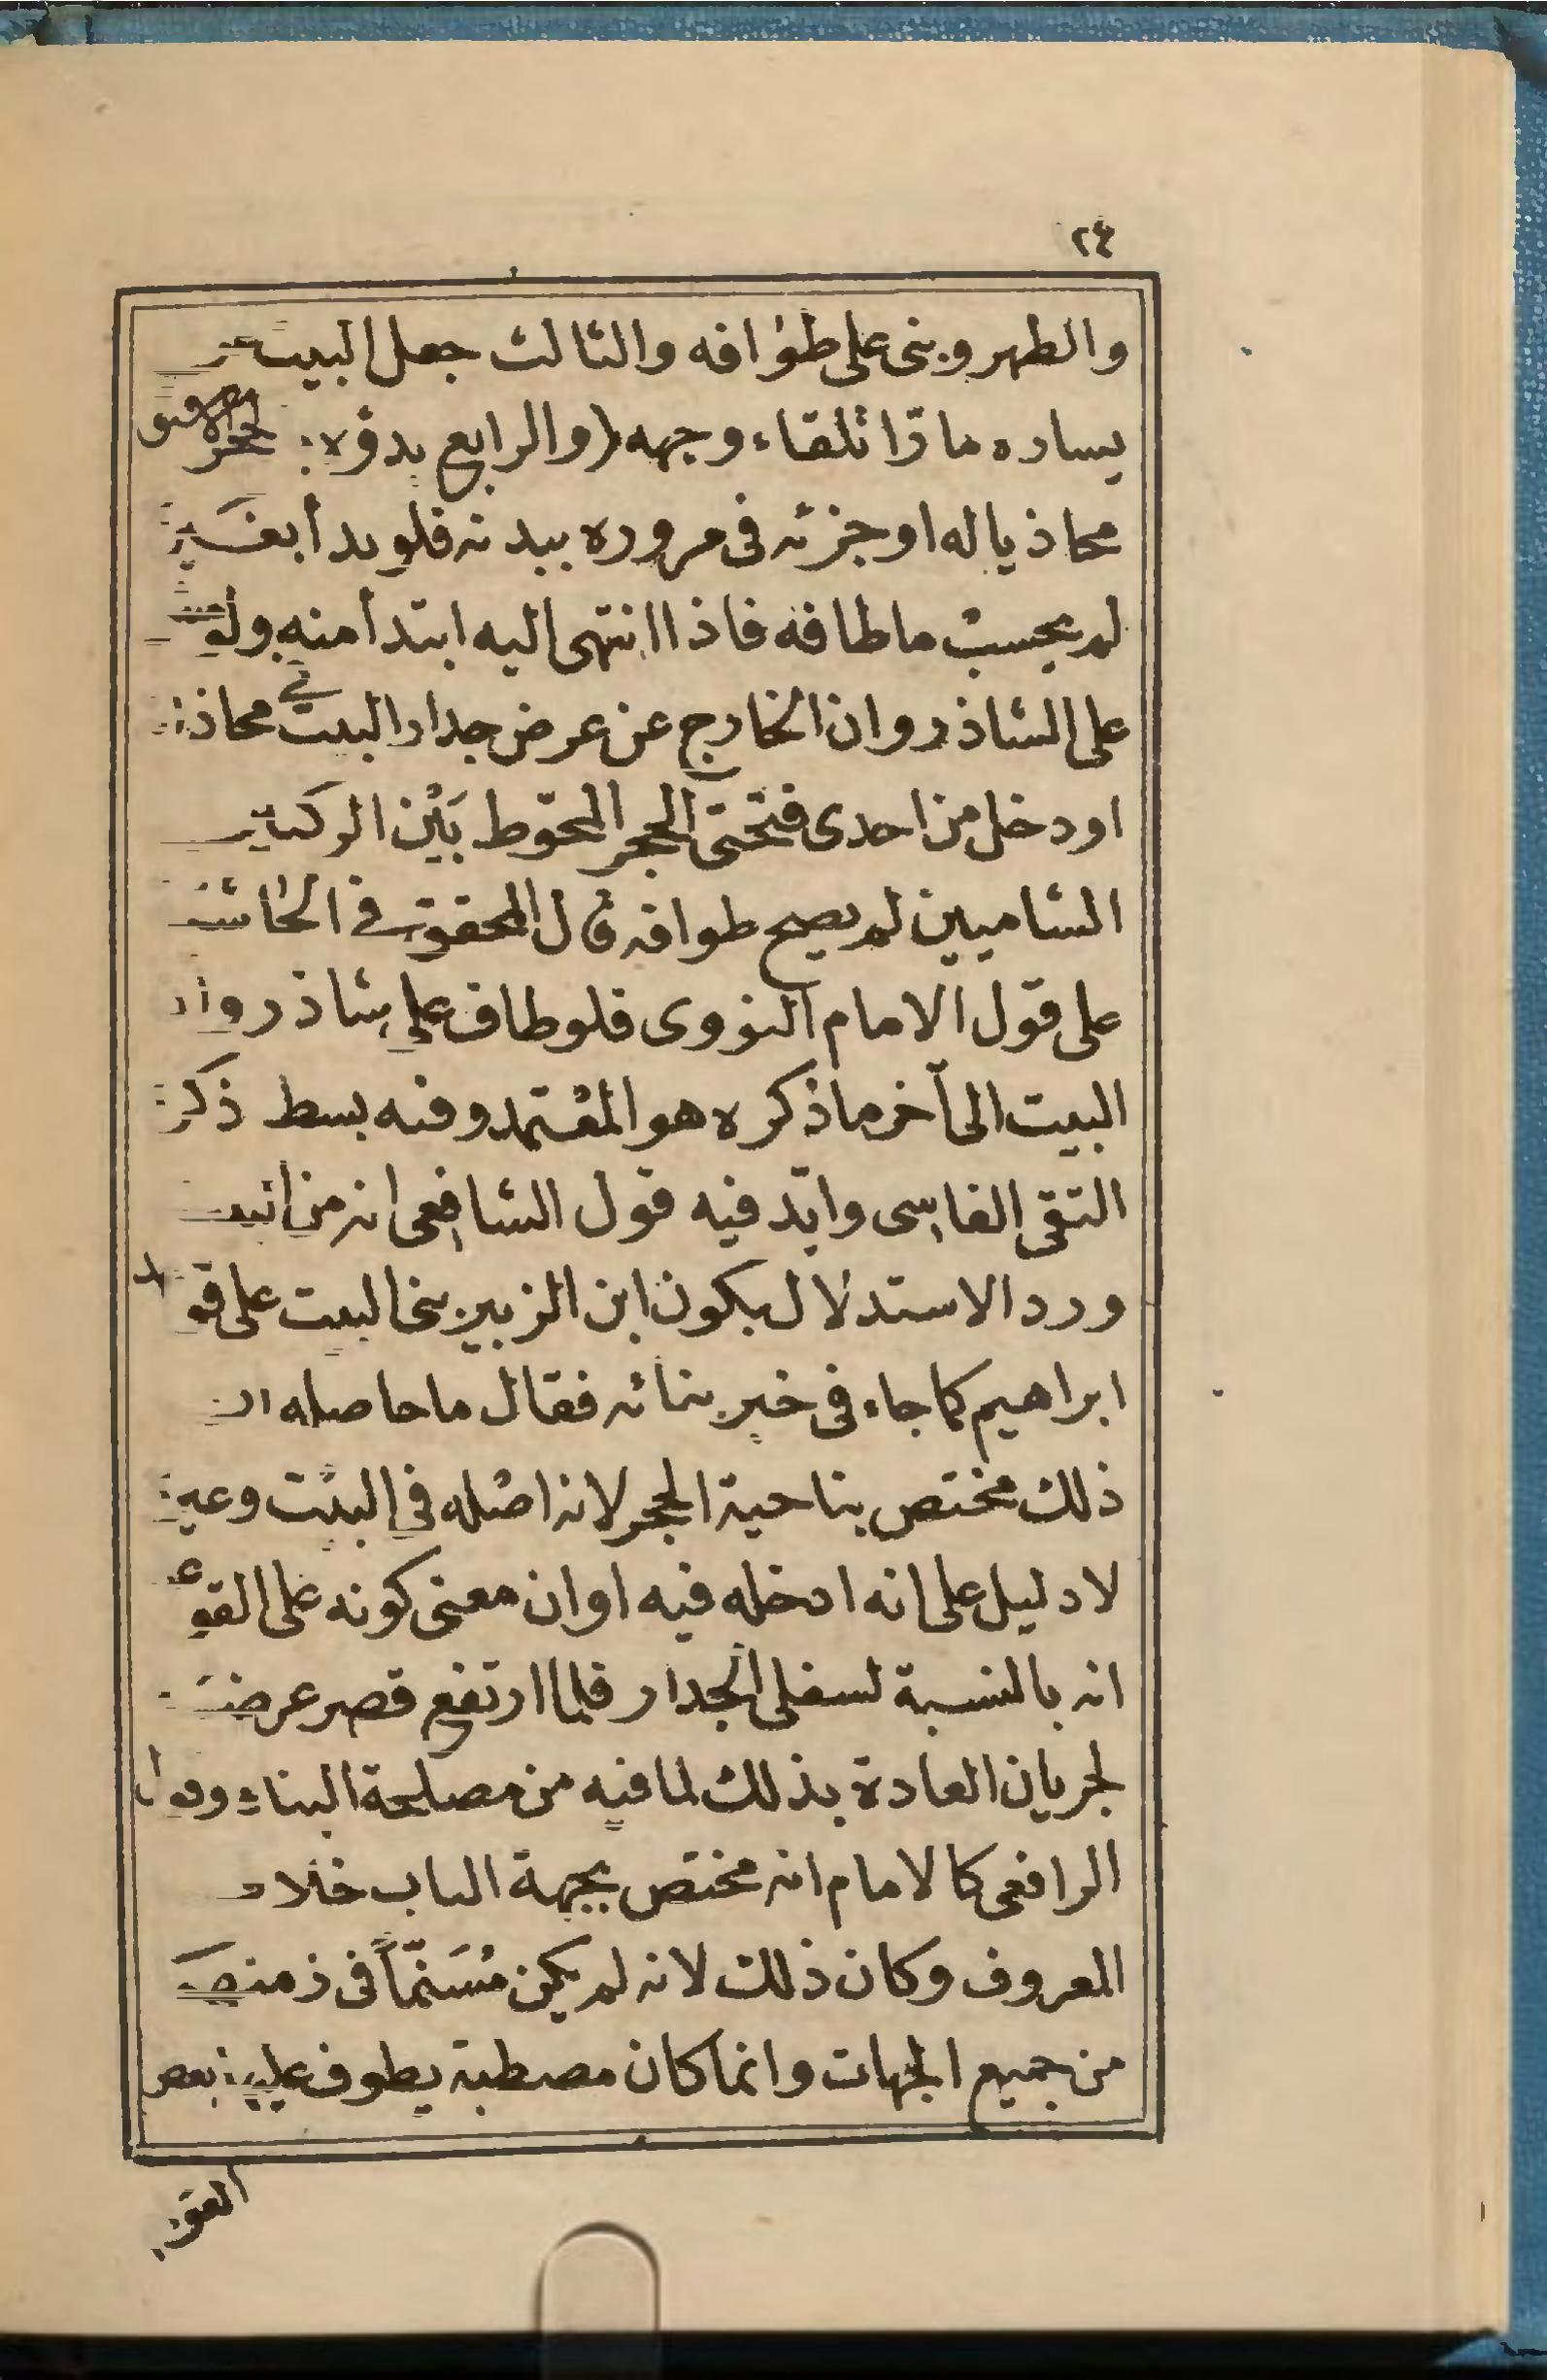 ٢٤
والطهر وبنى على طوافه والثالث جعل البيت عن
يساره مارّا تلقاء وجهه (والرابع بدؤه
محاذيا له او جزئه في مروره ببدنه فلو بدأ بغير
لم يحسب ما طافه فاذا انتهى اليه ابتدأ منه ولو
على الشاذروان الخارج عن عرض جدار البيت في محاذ
او دخل من احدى فتحتي الحجر المحوّط بَيْن الركنين
الشاميين لم يصح طوافه قال المحقق في الحاشية
على قول الامام النووى فلو طاف على شاذروان
البيت الى آخر ما ذكره هو المعتمد وفيه بسط ذكر
التقى الفاسى وايّد فيه قول الشافعى انه من البيت
ورد الاستدلال بكون ابن الزبير بنى البيت على قو
ابراهيم كما جاء في خبر بنائه فقال ما حاصله ان
ذلك مختص بناحية الحجر لانه اصله في البيت وغير
لا دليل على انه ادخله فيه او ان معنى كونه على القو
انه بالنسبة لسفلى الجدار فلما ارتفع قصر عرضه
لجريان العادة بذلك لما فيه من مصلحة البناء وقول
الرافعى كالامام انه مختص بجهة الباب خلاف
المعروف وكان ذلك لانه لم يكن مُسَنّماً في زمنه
من جميع الجهات وانما كان مصطبة يطوف عليه بعض
العو